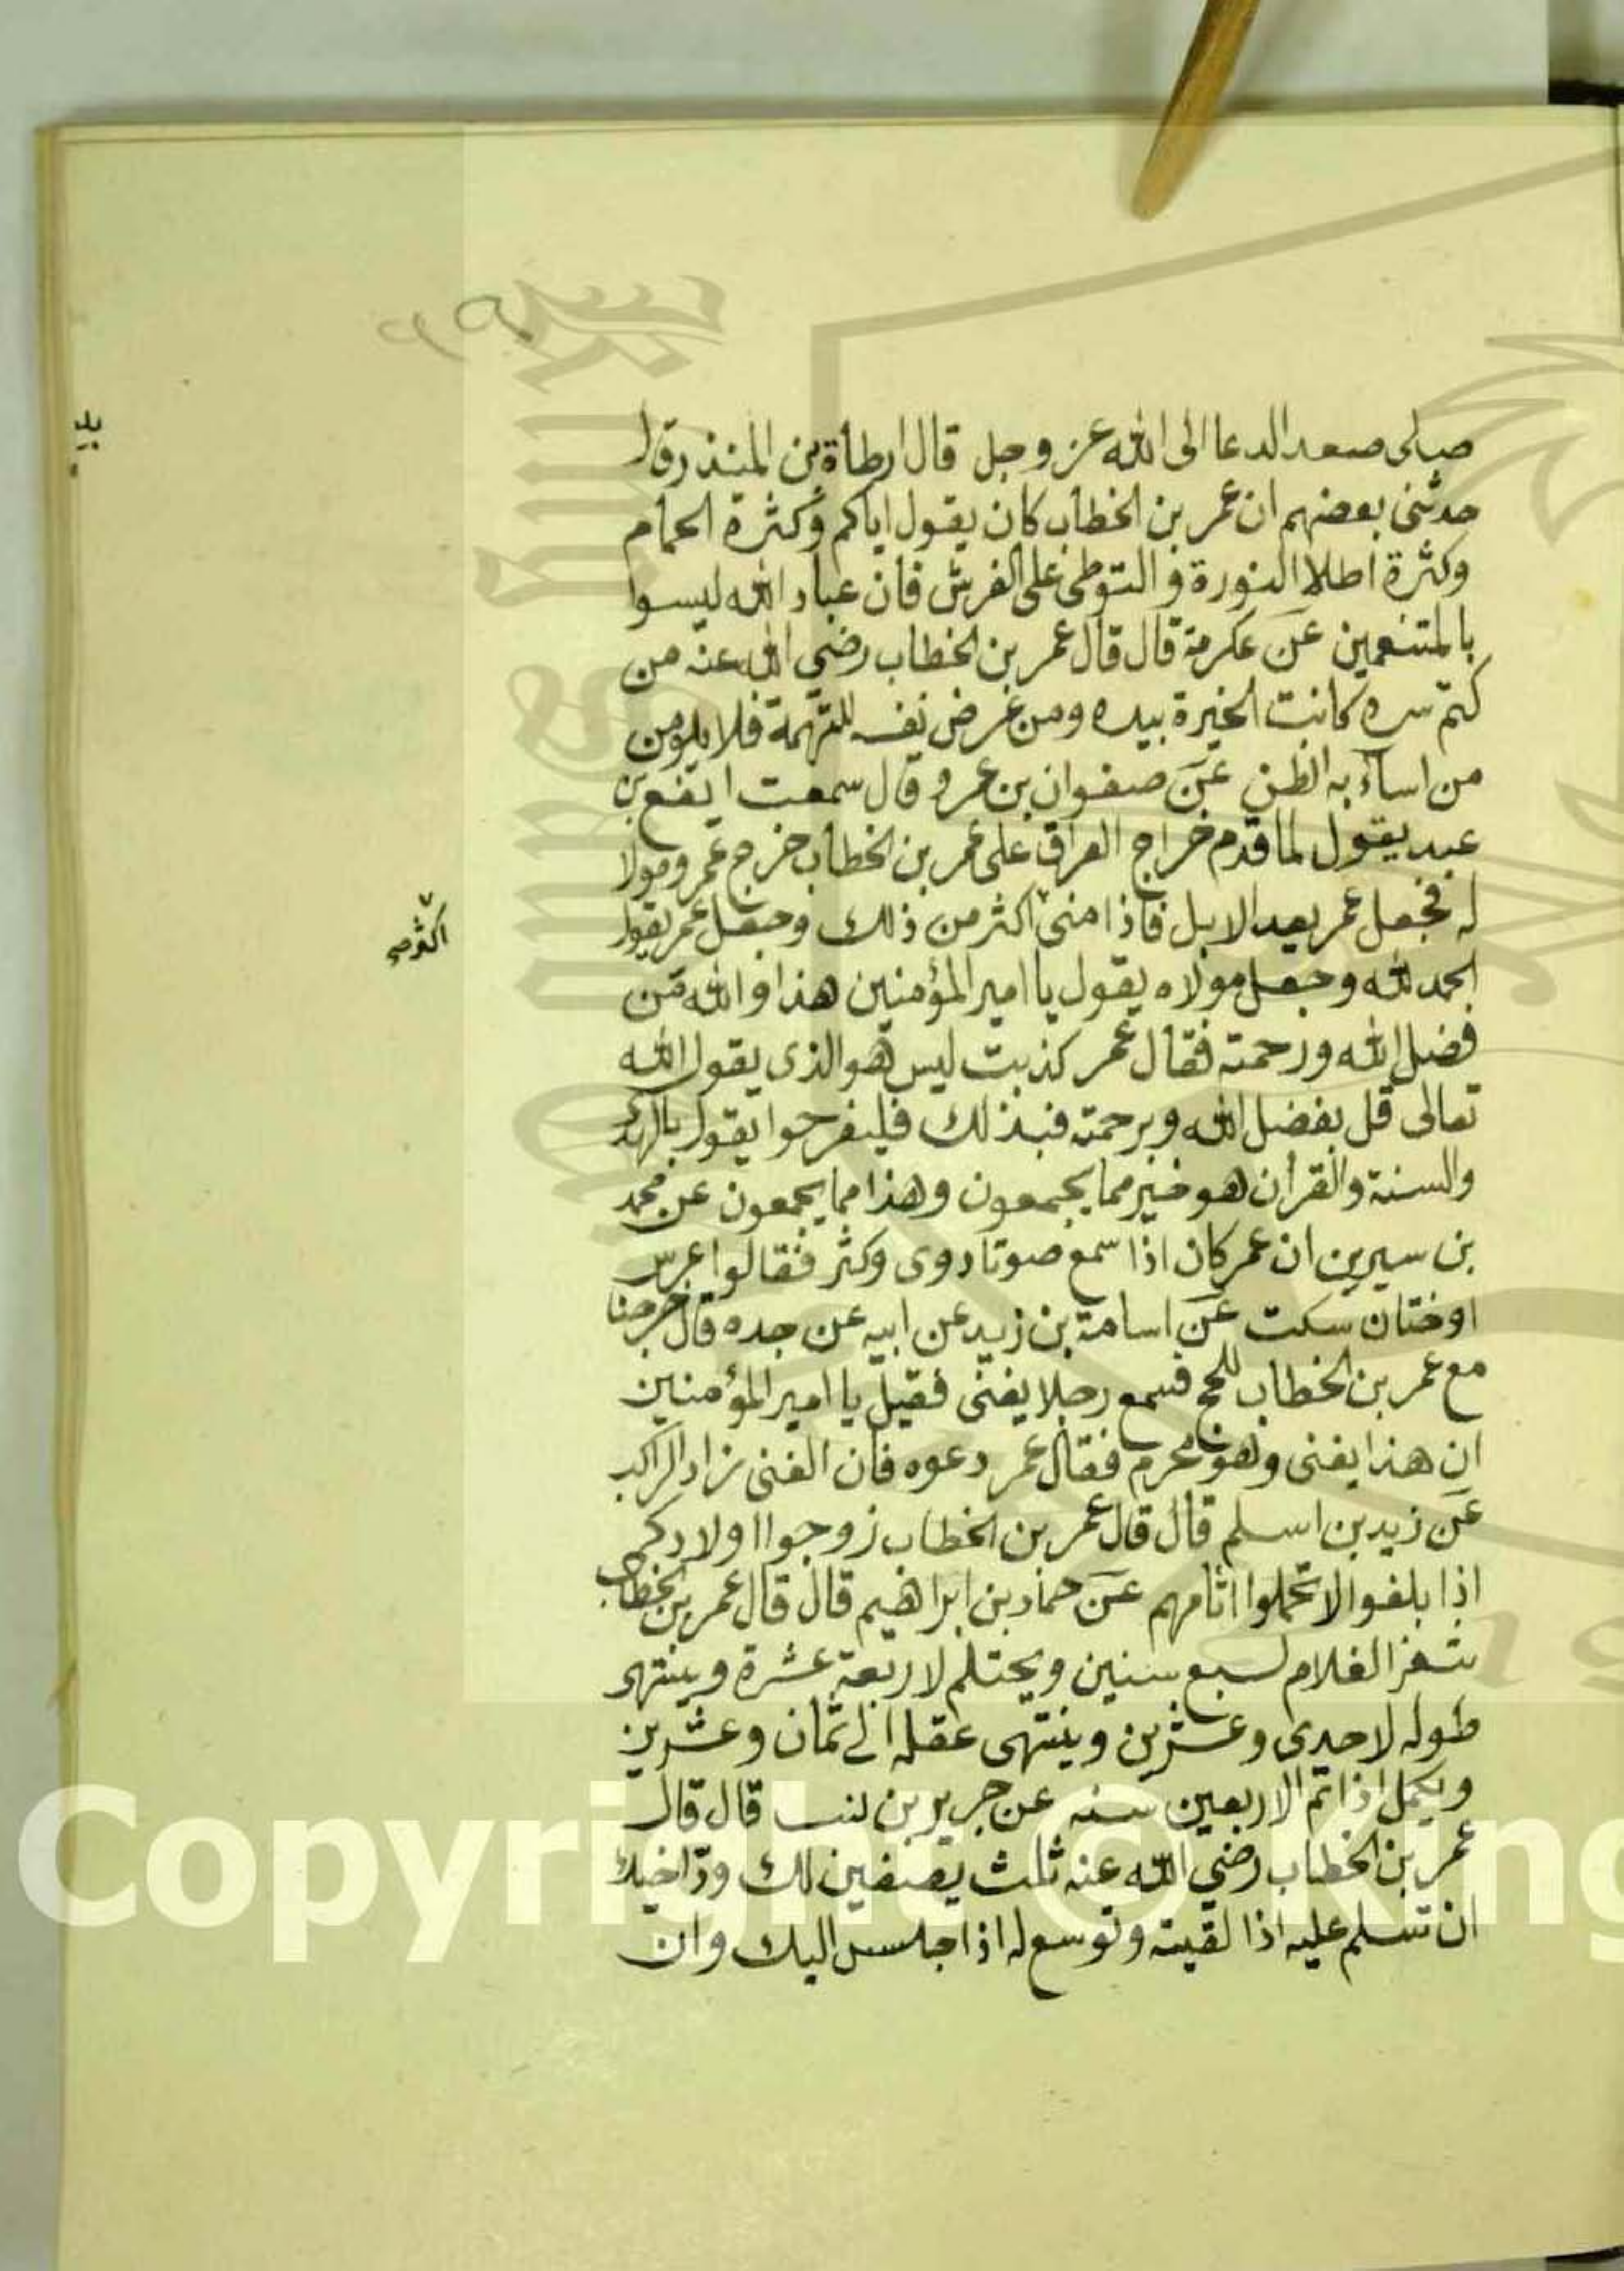 صلى صعد الدعا الى الله عز وجل قال ارطأة بن المنذر وقال
حدثنى بعضهم ان عمر بن الخطاب كان يقول اياكم وكثرة الحمام
وكثرة اطلا النورة والتوطى على الفرش فان عباد الله ليسوا
بالمتنعمين عن عكرمة قال قال عمر بن الخطاب رضي الله عنه من
كتم سره كانت الخيرة بيده ومن عرض نفسه للتهمة فلا يلومن
من اساء به الظن عن صفوان بن عمرو قال سمعت ايفع بن
عبد يقول لما قدم خراج العراق على عمر بن الخطاب خرج عمر ومولا
له فجعل عمر يعد الابل فاذا منى اكثر من ذلك وجعل عمر يقول
الحمد لله وجعل مولاه يقول يا امير المؤمنين هذا والله من
فضل الله ورحمته فقال عمر كذبت ليس هو الذى يقول الله
تعالى قل بفضل الله وبرحمته فبذلك فليفرحوا يقول بالهدى
والسنة والقرآن هو خير مما يجمعون وهذا مما يجمعون عن محمد
بن سيرين ان عمر كان اذا سمع صوتا دوى وكثر فقالوا عرس
اوختان سكت عن اسامة بن زيد عن ابيه عن جده قال خرجنا
مع عمر بن الخطاب للحج فسمع رجلا يغنى فقيل يا امير المؤمنين
ان هذا يغنى وهو محرم فقال عمر دعوه فان الغنى زاد الراكب
عن زيد بن اسلم قال قال عمر بن الخطاب زوجوا اولادكم
اذا بلغوا لا تحملوا اثامهم عن حماد بن ابراهيم قال قال عمر بن الخطاب
يثغر الغلام لسبع سنين ويحتلم لاربعة عشرة وينتهى
طوله لاحدى وعشرين وينتهى عقله الى ثمان وعشرين
ويكمل اذا تم الاربعين سنه عن جرير بن قال قال
عمر بن الخطاب رضي الله عنه ثلث يصفين لك ود اخيك
ان تسلم عليه اذا لقيته وتوسع له اذا جلس اليك وان
اكثر صح
Copyright © King